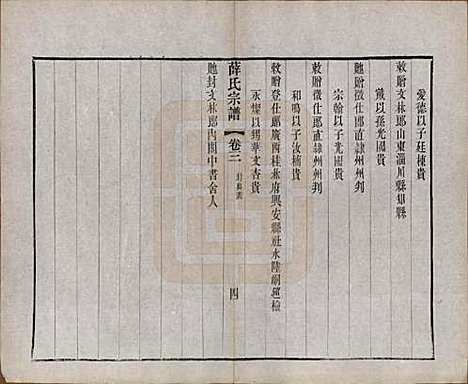 愛德以子廷棟貴
敕贈文林郎山東淄川縣知縣
戴以孫光國貴
貤贈徵仕郎直隸州州判
宗翰以子光國貴
敕贈徵仕郎直隸州州判
和鳴以子汝楠貴
敕贈登仕郎廣西桂林府興安縣六峒巡檢
永燦以甥華文杏貴
貤封文林郎內閣中書舍人
薛氏宗譜
卷三
四